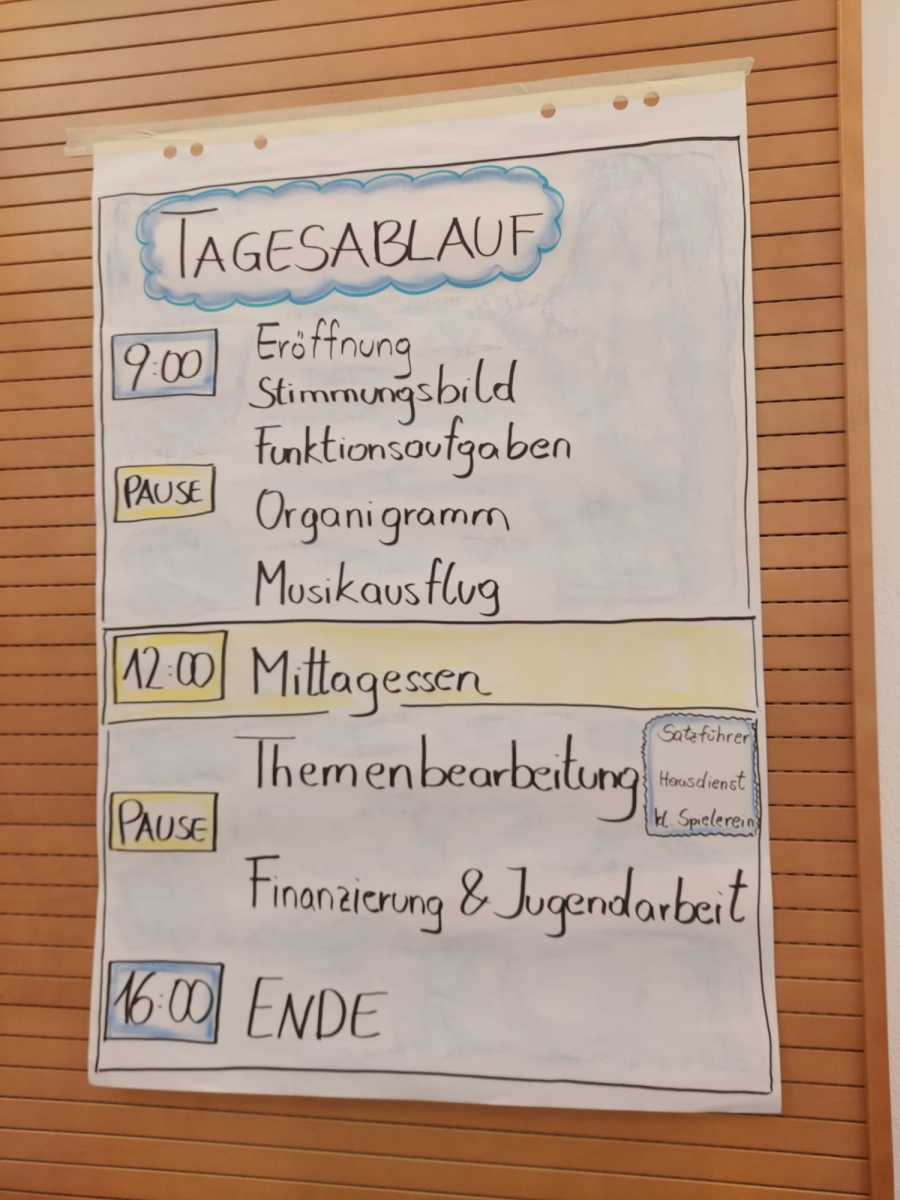 TAGESABLAUF
9:00 Eröffnung
Stimmungsbild
Funktionsaufgaben
PAUSE
Organigramm
Musikausflug
12:00 Mittagessen
Themenbearbeitung
Satzführer
Hausdienst
kl. Spielerein
PAUSE
Finanzierung & Jugendarbeit
16:00 ENDE